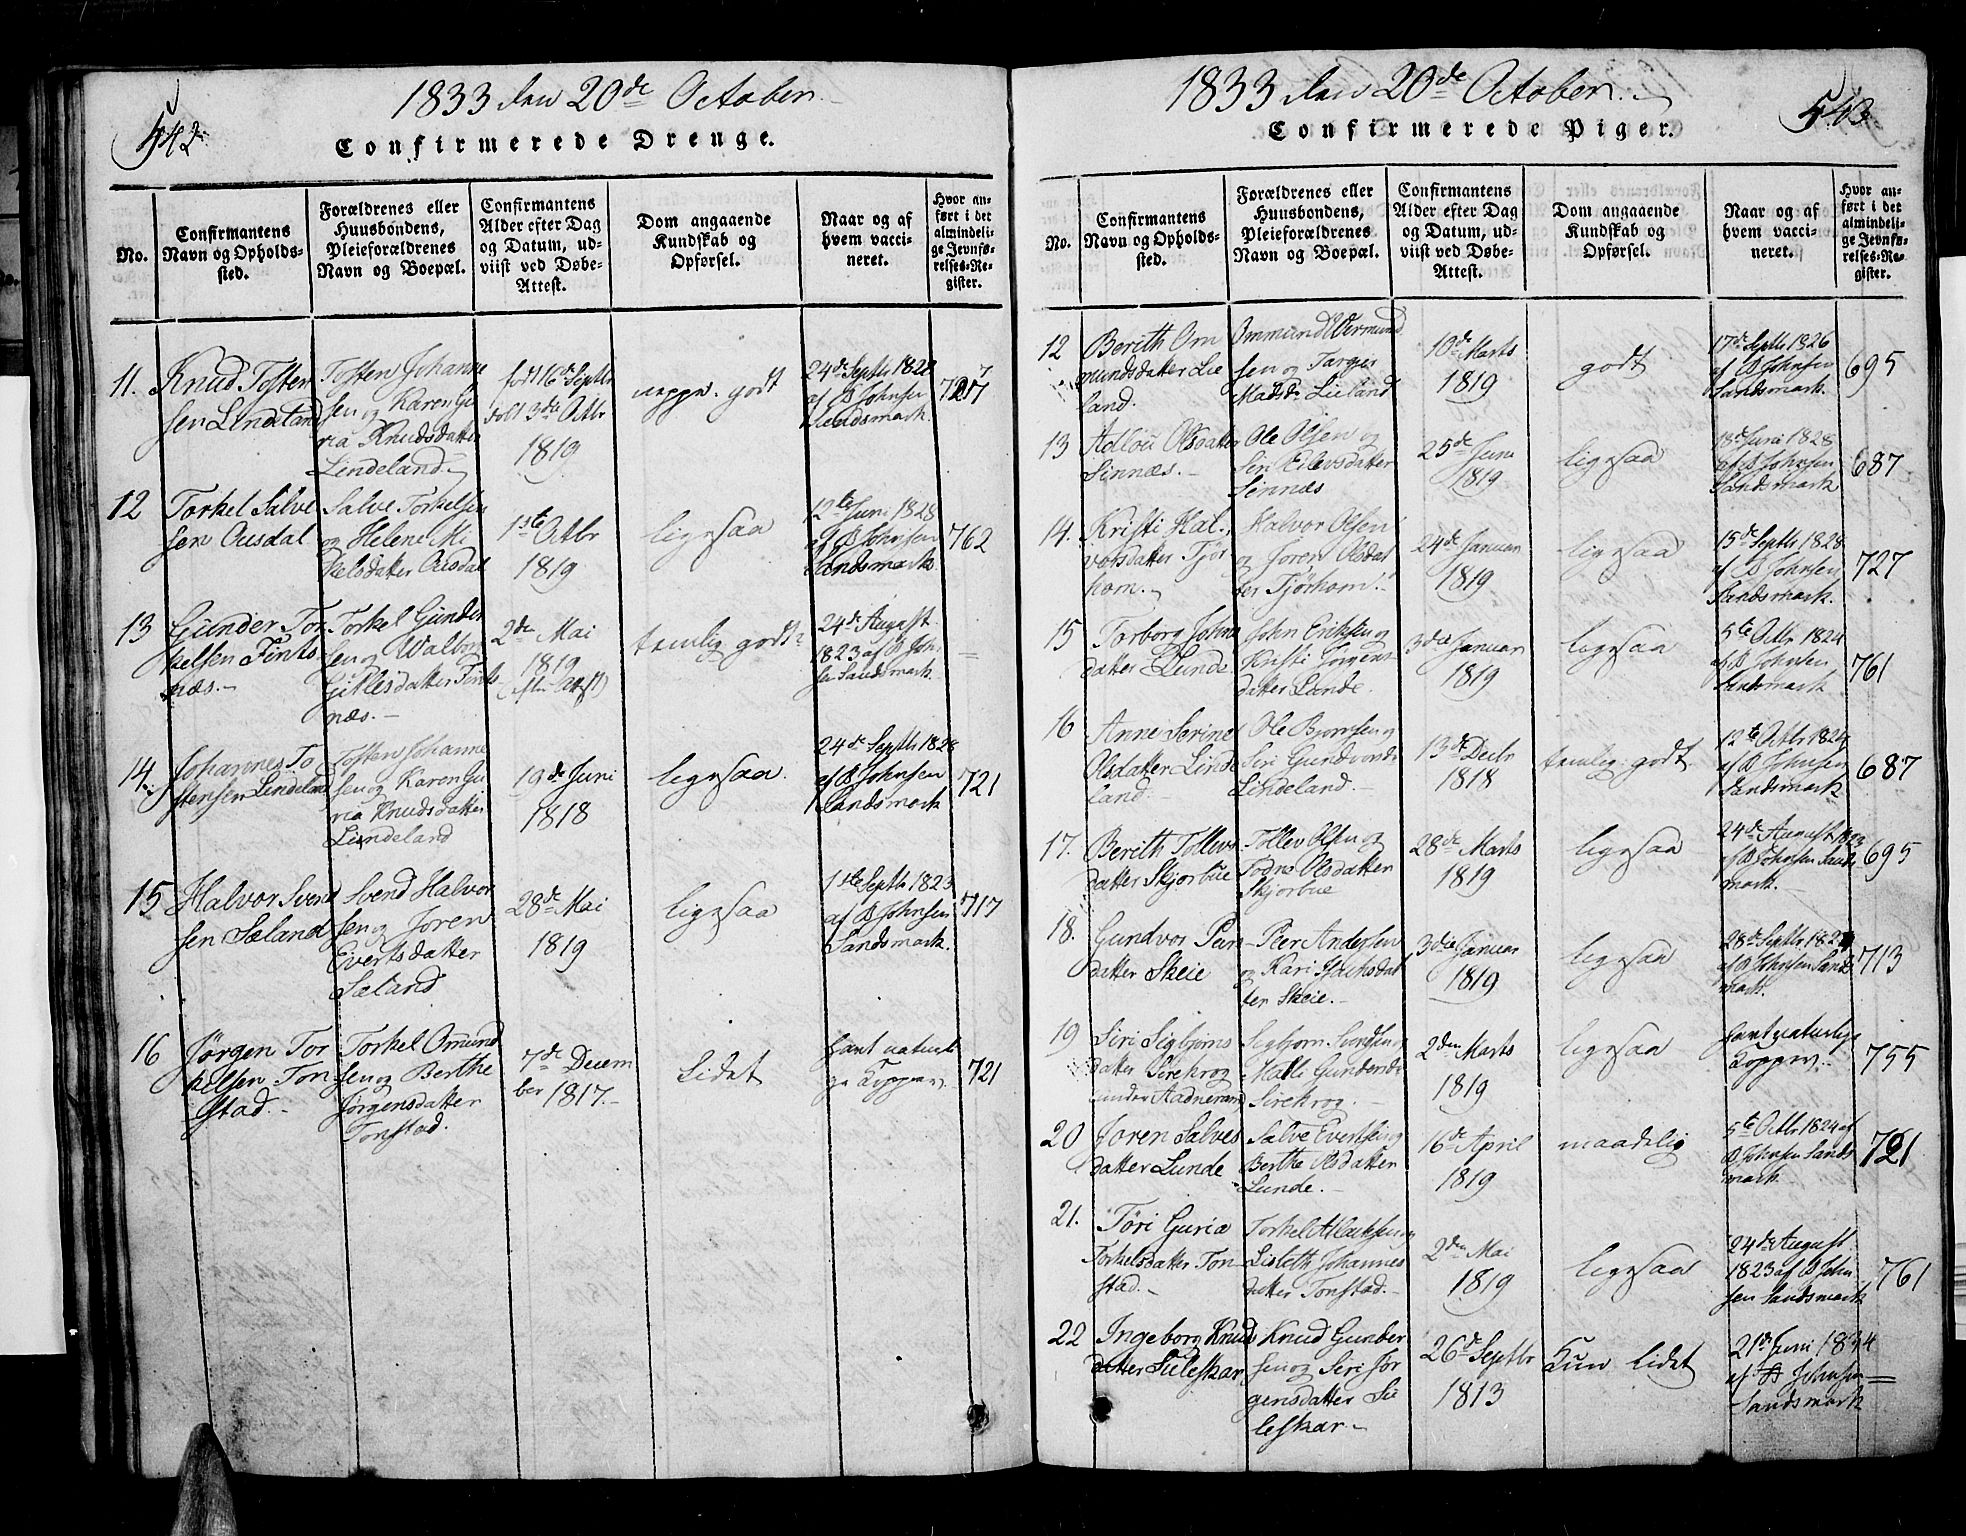 542
1833 den 20de October
Confirmerede Drenge.
No.
Confirmantens
Navn og Opholds-
sted.
Forældrenes eller
Huusbondens,
Pleieforældrenes
Navn og Boepæl.
Confirmantens
Alder efter Dag
og Datum, ud-
viist ved Døbe-
Attest.
Dom angaaende
Kundskab og
Opførsel.
Naar og af
hvem vacci-
neret.
Hvor an-
ført i det
almindeli-
ge Jevnfø-
relses-Re-
gister.
11.
Knud Tosten
sen Lindeland
Tosten Johanne
sen og Karen Gu
ria Knudsdatter
Lindeland
født 16de Septbr
døbt 3die Octbr
1819
godt
24de Septbr 1828
af B Johnsen
Sandsmark.
12
Torkel Salve
sen Ousdal
Salve Torkelsen
og Helene Mi
kelsdatter Ousdal
1ste Octbr
1819
ligesaa
12te Juni 1828
af B Johnsen
Sandsmark
762
13
Gunder Tor
kelsen Fints
næs.-
Torkel Gunder
sen og Walbor
Gitlesdatter Fints
næs.-
2den Mai
1819
(efter Attest)
temlig godt
24de August
1823 af B John
sen Sandsmark
=
14.
Johannes To
stensen Lindeland
Tosten Johanne
sen og Karen Gu
ria Knudsdatter
Lindeland
19de Juni
1818
ligesaa.
24de Septbr 1828
af B Johnsen
Sandsmark
721
15
Halvor Svend
sen Sæland
Svend Halvor
sen og Joren
Evertsdatter
Sæland
28de Mai
1819
ligesaa
1ste Septbr 1823
af B Johnsen
Sandsmark.
717
16
Jørgen Tor
kelsen Ton
stad.-
Torkel Omund
sen og Berthe
Jørgensdatter
Tonstad.
7de Decem
ber 1817.-
Lidet
havt naturli
ge Kopper
721
543
1833 den 20de October.
Confirmerede Piger.
No.
Confirmantens
Navn og Opholds-
sted.
Forældrenes eller
Huusbondens,
Pleieforældrenes
Navn og Boepæl.
Confirmantens
Alder efter Dag
og Datum, ud-
viist ved Døbe-
Attest.
Dom angaaende
Kundskab og
Opførsel.
Naar og af
hvem vacci-
neret.
Hvor an-
ført i det
almindeli-
ge Jevnfø-
relses-Re-
gister.
12
Berith Om
mundsdatter Lie
land.
Ommund Wermund
sen og Targer
Madsdr Lieland
10de Marts
1819
godt
17de Septbr 1826
af B Johnsen
Sandsmark.
695
13
Adlou Olsdatter
Sinnæs.-
Ole Olsen og
Siri Eilevsdatter
Sinnæs
25de Juni
1819
ligesaa
18de Juni 1828
af B Johnsen
Sandsmark
687
14.
Kristi Hal
vorsdatter Tjør
hom.
Halvor Olsen
og Joren Olsdat
ter Tjørhom.-
24de Januar
1819
ligesaa
15de Septbr 1828
af B Johnsen
Sandsmark.
727
15
Torborg Johns
datter Lunde
John Eriksen og
Kristi Jørgens
datter Lunde.
3die Januar
1819
ligesaa
5te Octbr 1824
af B Johnsen
Sandsmark
761
16
Anne Serine
Olsdatter Linde
land.
Ole Bjornsen og
Siri Gundvorsdr
Lindeland.-
13de Decbr
1818
temlig godt
12te Octbr
af B Johnsen
Sandsmark
687
17.
Berith Tollevs
datter Skjorbue
Tollev Olsen og
Todne Olsdatter
Skjorbue
28de Marts
1819
ligesaa
24de August 1823
af B Johnsen Sands
mark.-
695
18.
Gundvor Peer
datter Skeie
Peer Andersen
og Kari Isachsdat
ter Skeie.-
3die Januar
1819
ligesaa
28de Septbr
af B Johnsen Sands
mark.
713
19
Siri Sigbjorns
datter Sirekrog
under Aadneram
Sigbjorn Svendsen og
Malli Gundersdr
Sirekrog.-
2den Marts
1819
ligesaa
havt naturlige
Kopper.
755
20
Joren Salves
datter Lunde
Salve Evertsen og
Berthe Olsdatter
Lunde.-
16de April
1819
maadelig
5te Octbr 1824 af
B Johnsen Sands
mark
721
21.
Tøri Guria
Torkelsdatter Ton
stad.-
Torkel Aslaksen og
Lisbeth Johannes
datter Tonstad.-
2den Mai
1819
ligesaa
24de August
1823 af B John
sen Sandsmark
761
22
Ingeborg Knuds
datter Suleskar
Knud Gunder
sen og Siri Jør
gensdatter Su
leskar-
26de Septbr
1813
Kun lidet
21de Juni 1834
af B Johnsen
Sandsmark
=